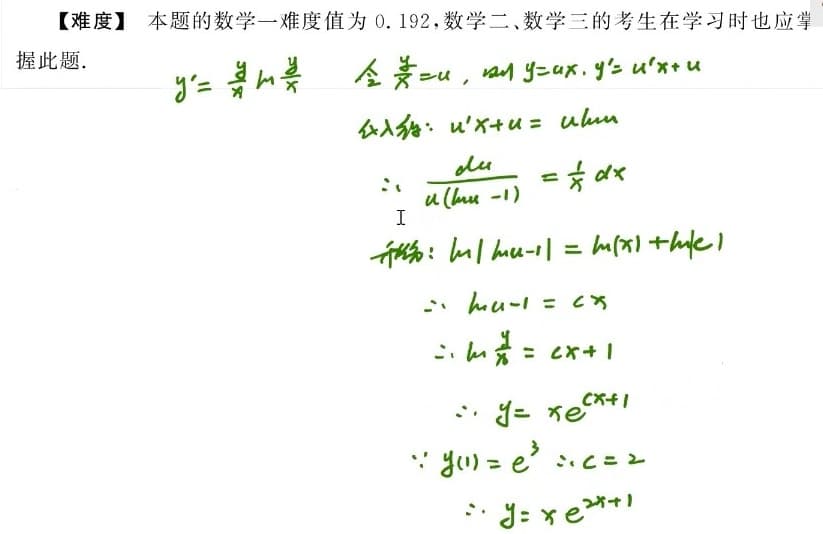 【难度】 本题的数学一难度值为 0.192,数学二、数学三的考生在学习时也应掌
握此题.
y'= y/x ln y/x 令 y/x =u , 则 y=ux. y'= u'x+u
代入得: u'x+u = ulnu
∴ du/u(lnu -1) = 1/x dx
积分: ln|lnu-1| = ln|x| +ln|c|
∴ lnu-1 = cx
∴ ln y/x = cx+1
∴ y= xe^{cx+1}
∵ y(1) = e^3 ∴ c = 2
∴ y= x e^{2x+1}